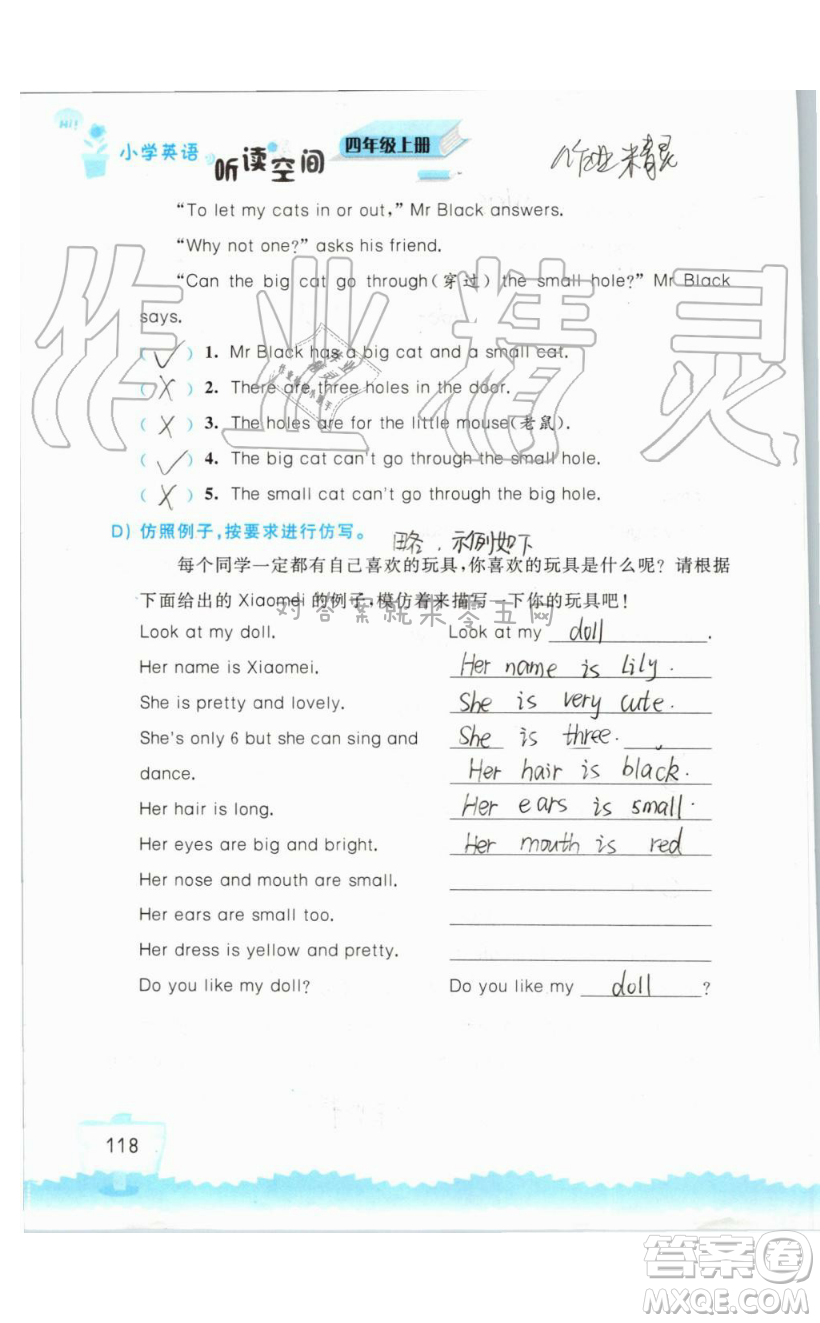 Hi!
小学英语 听读空间 四年级上册 作业精灵
“To let my cats in or out,” Mr Black answers.
“Why not one?” asks his friend.
“Can the big cat go through(穿过) the small hole?” Mr Black
says.
( ✓ ) 1. Mr Black has a big cat and a small cat.
( X ) 2. There are three holes in the door.
( X ) 3. The holes are for the little mouse(老鼠).
( ✓ ) 4. The big cat can't go through the small hole.
( X ) 5. The small cat can't go through the big hole.
D) 仿照例子,按要求进行仿写。 略.示例如下
每个同学一定都有自己喜欢的玩具,你喜欢的玩具是什么呢?请根据
下面给出的 Xiaomei 的例子,模仿着来描写一下你的玩具吧!
对答案就来零五网
Look at my doll. Look at my doll.
Her name is Xiaomei. Her name is Lily.
She is pretty and lovely. She is very cute.
She's only 6 but she can sing and She is three.
dance. Her hair is black.
Her hair is long. Her ears is small.
Her eyes are big and bright. Her mouth is red
Her nose and mouth are small.
Her ears are small too.
Her dress is yellow and pretty.
Do you like my doll? Do you like my doll?
118
作业精灵
答案卷
MXQE.COM